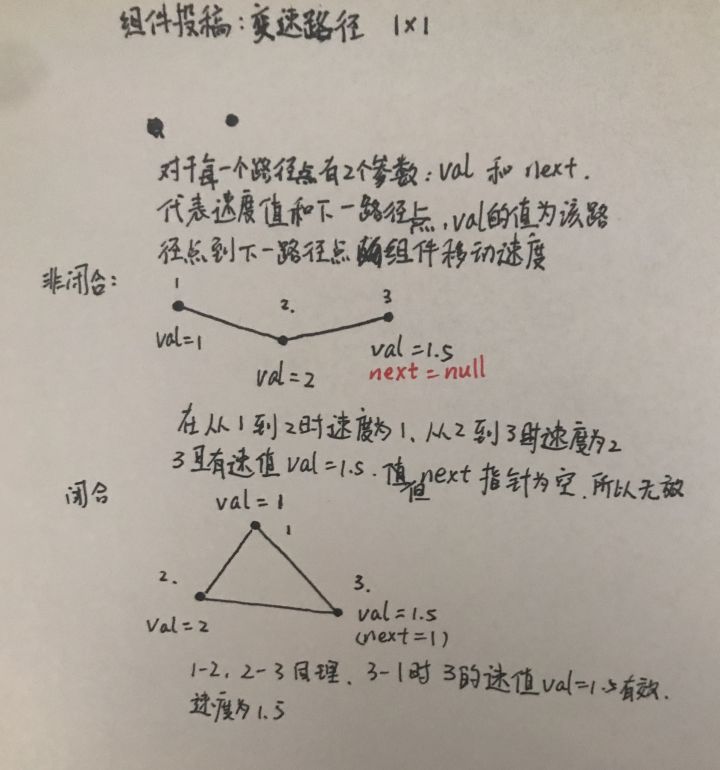 组件投稿:变速路径 1×1
对于每一个路径点有2个参数:val 和 next.
代表速度值和下一路径点,val的值为该路
径点到下一路径点的组件移动速度
非闭合:
1
2.
3
val=1
val=2
val=1.5
next=null
在从1到2时速度为1、从2到3时速度为2
3且有速值val=1.5.但next指针为空.所以无效
闭合
val=1
1
2.
val=2
3.
val=1.5
(next=1)
1-2,2-3同理、3-1时3的速值val=1.5有效.
速度为1.5